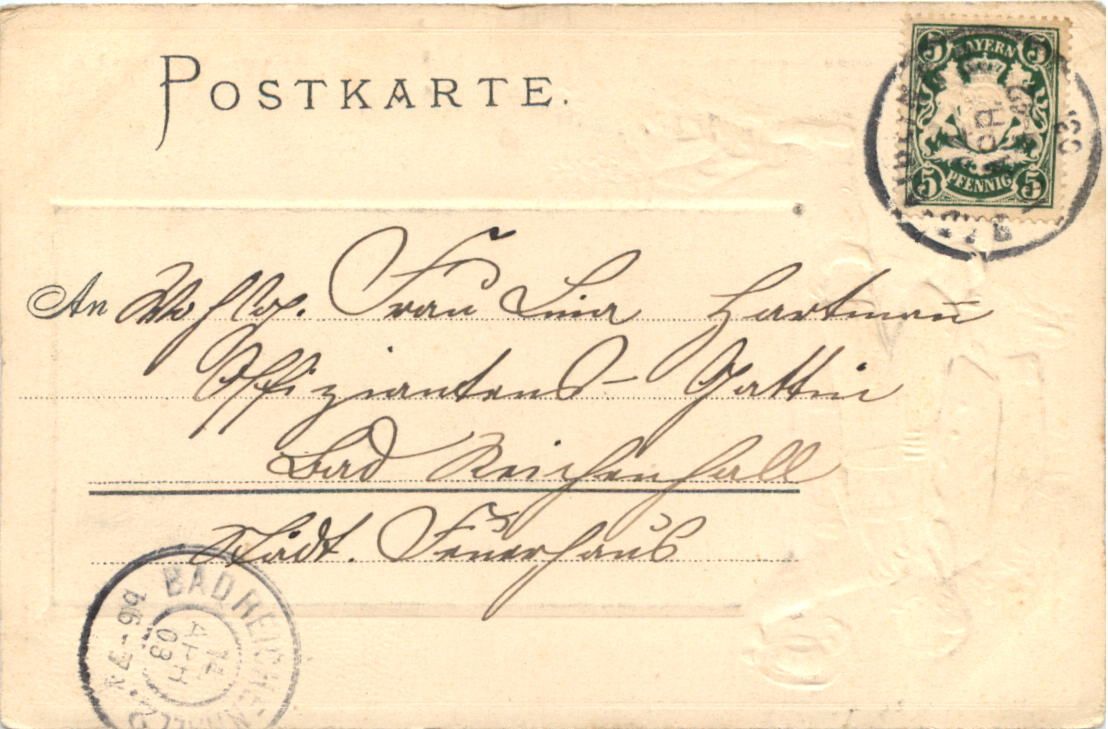 POSTKARTE.
5 BAYERN 5
5 PFENNIG 5
An Wohlg. Frau Lina Hartman̄
Offiziantens-Gattin
Bad Reichenhall
Städt. Feuerhaus
BAD REICHENHALL 2.
14
APR
03
6-7